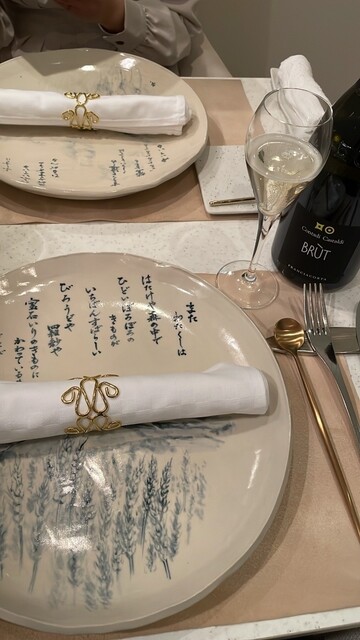 また
わたくしは
はたけや森の中で
ひどいぼろぼろの
きものが
いちばんすばらしい
びろうどや
羅紗や
宝石いりのきものに
かわっている
Contadi Castaldi
BRÙT
FRANCIACORTA